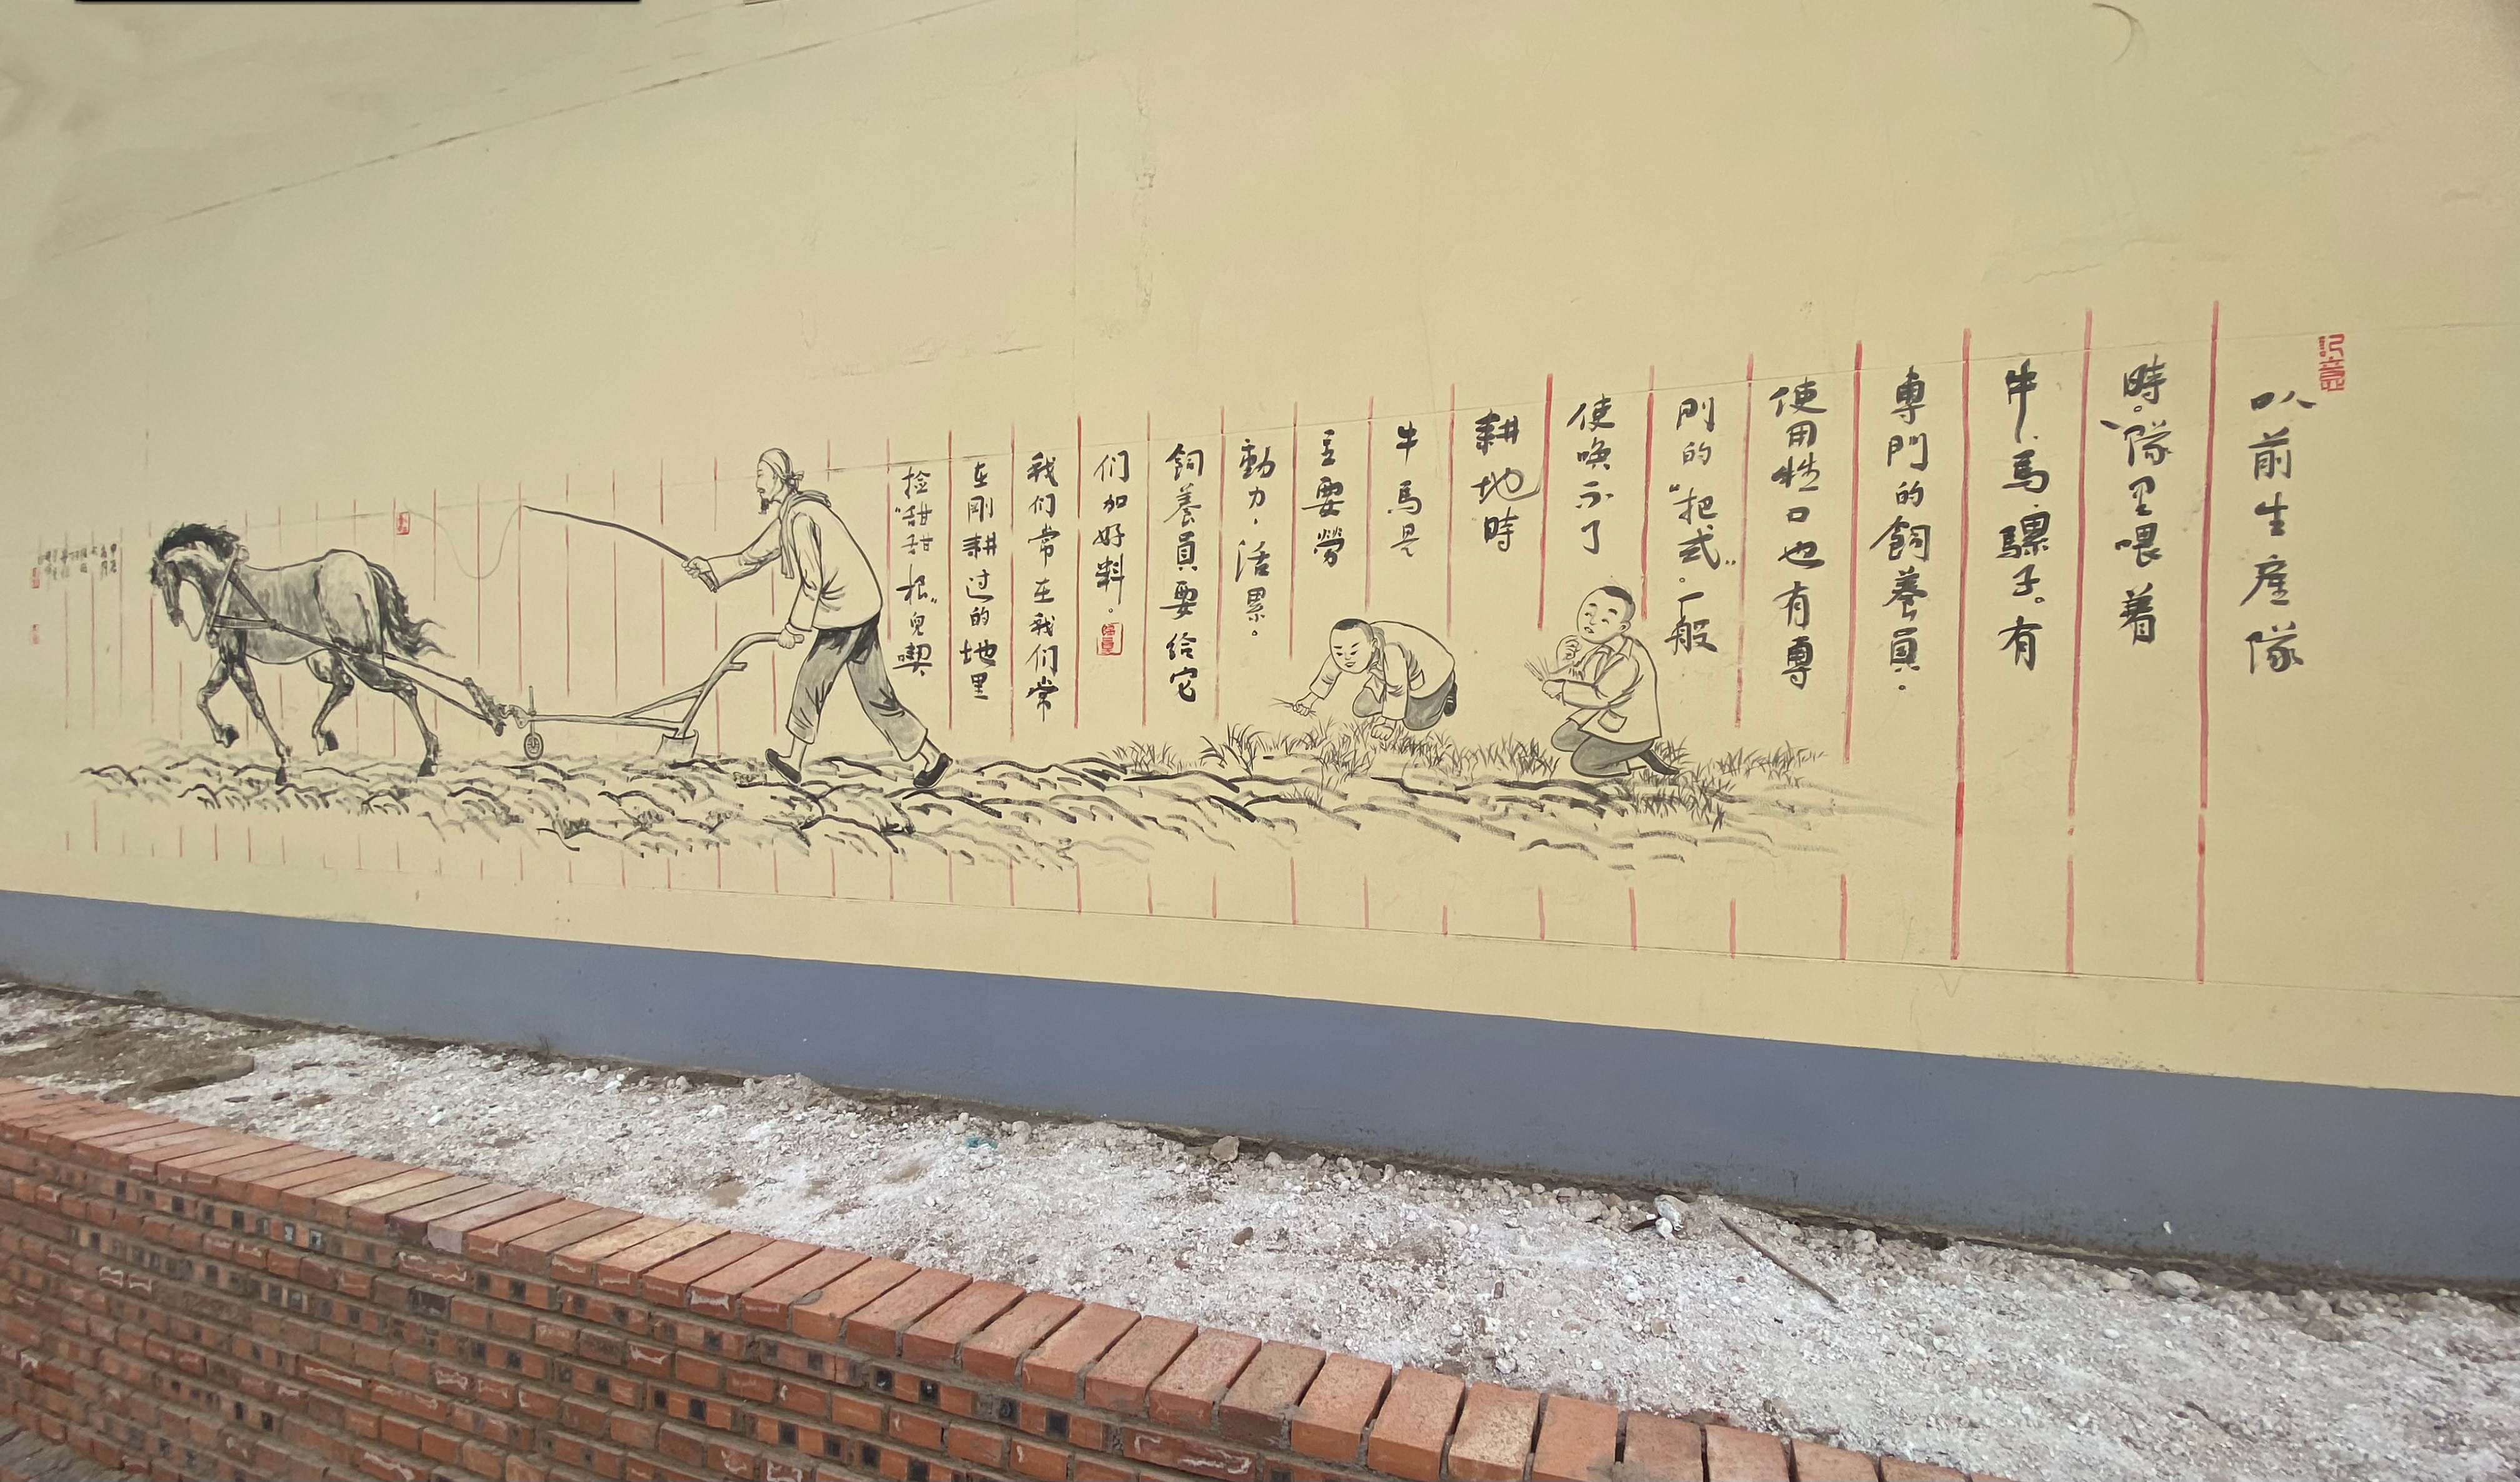 以前生産隊
時。隊里喂着
牛.馬.騾子。有
專門的飼養員.
使用牲口也有專
門的“把式”。一般
使喚不了
耕地時
牛馬是
主要勞
動力，活累。
飼養員要給它
们加好料。
我们常在我们常
在剛耕过的地里
捡“甜甜根”兒喫